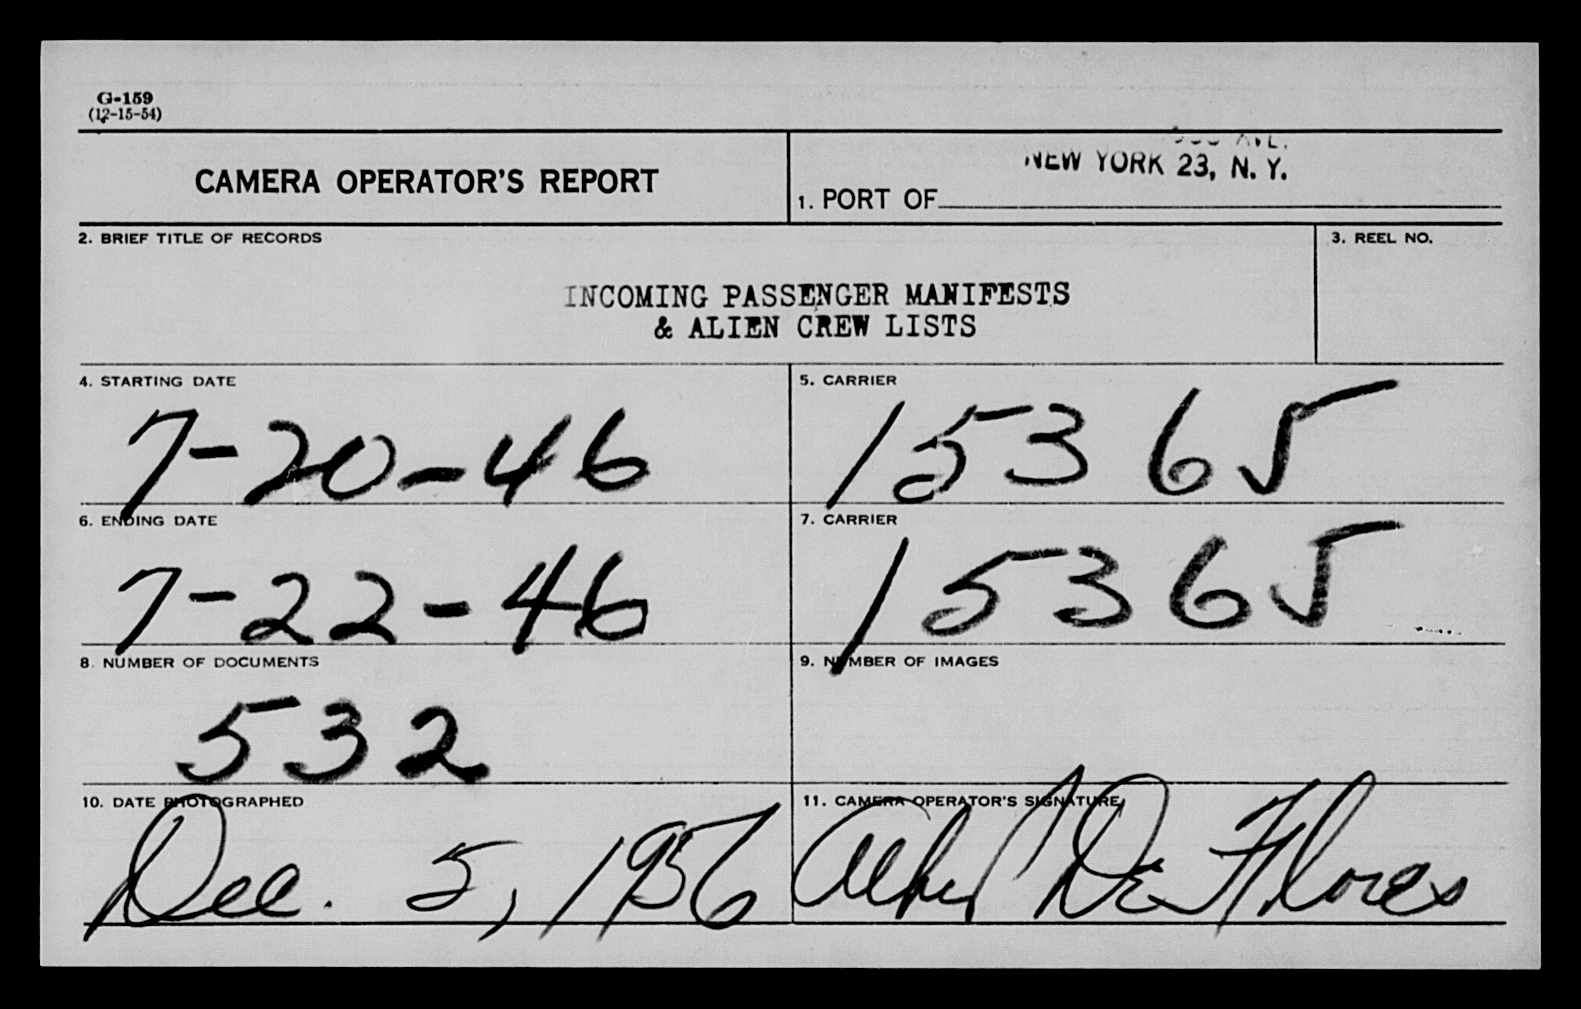 G-159
(12-15-54)
CAMERA OPERATOR'S REPORT
NEW YORK 23, N. Y.
1. PORT OF
2. BRIEF TITLE OF RECORDS
3. REEL NO.
INCOMING PASSENGER MANIFESTS
& ALIEN CREW LISTS
4. STARTING DATE
7-20-46
5. CARRIER
15365
6. ENDING DATE
7-22-46
7. CARRIER
15365
8. NUMBER OF DOCUMENTS
532
9. NUMBER OF IMAGES
10. DATE PHOTOGRAPHED
Dec. 5, 1956
11. CAMERA OPERATOR'S SIGNATURE
De Flores